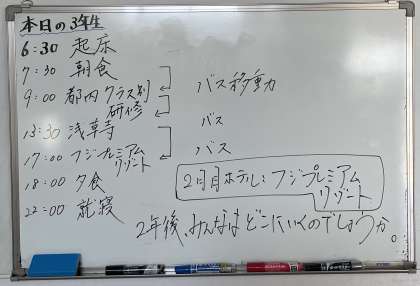 本日の3年生
6:30 起床
7:30 朝食
9:00 都内クラス別
研修
バス移動
13:30 浅草寺
バス
17:00 フジプレミアム
リゾート
バス
18:00 夕食
22:00 就寝
2日目ホテル:フジプレミアム
リゾート
2年後、みんなはどこにいくのでしょうか。